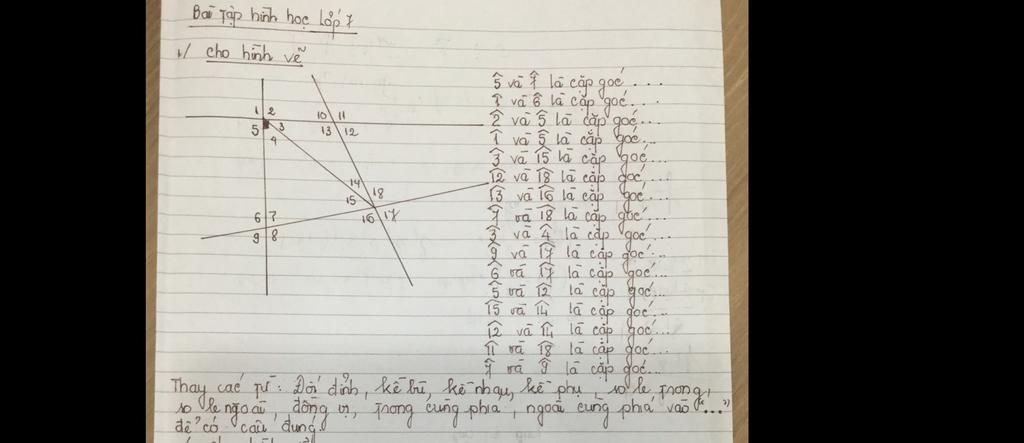 Bài Tập hình học lớp 7
1/ cho hình vẽ
1 2 10 11
5 3 13 12
4
14 18
15
16 17
6 7
9 8
5̂ và 7̂ là cặp góc....
1̂ và 6̂ là cặp góc....
2̂ và 5̂ là cặp góc...
1̂ và 5̂ là cặp góc...
3̂ và 15̂ là cặp góc...
12̂ và 18̂ là cặp góc...
13̂ và 16̂ là cặp góc...
7̂ và 18̂ là cặp góc...
3̂ và 4̂ là cặp góc...
9̂ và 17̂ là cặp góc...
6̂ và 17̂ là cặp góc...
5̂ và 12̂ là cặp góc...
15̂ và 14̂ là cặp góc...
12̂ và 14̂ là cặp góc...
11̂ và 18̂ là cặp góc...
7̂ và 9̂ là cặp góc...
Thay các từ: Đối đỉnh, kề bù, kề nhau, kề phụ, so le trong,
so le ngoài, đồng vị, trong cùng phía, ngoài cùng phía vào "..."
để có câu đúng.